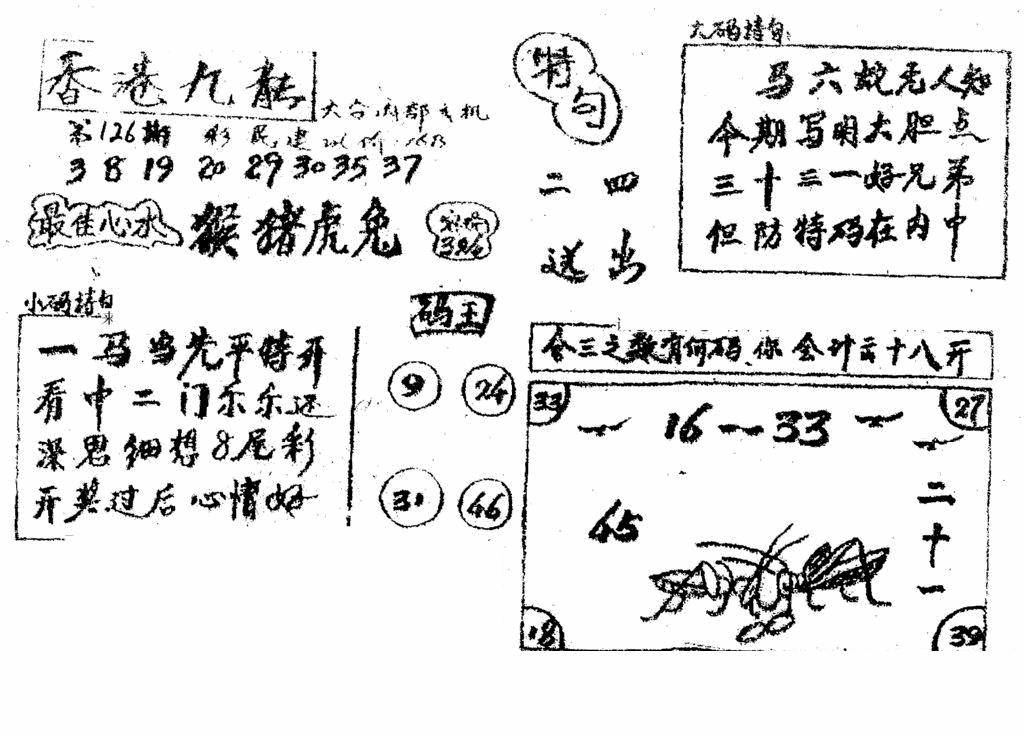 香港九龍
六合内部
第126期 彩民
3 8 19 20 29 30 35 37
最佳心水 猴猪虎兔
小码特句
一马当先平特开
看中二门乐乐还
深思细想8尾彩
开奖过后心情好
码王
9 24
31 46
特句
二四
送出
大码特句
马六蛇无人知
今期写明大胆点
三十三一好兄弟
但防特码在内中
合三之数有何码、你会计云十八开
33 27
16——33
45
二十一
18 39